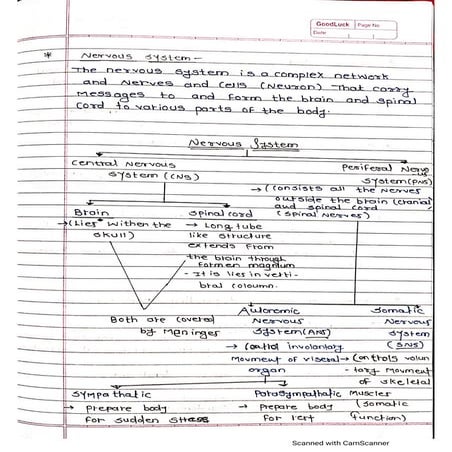 GoodLuck Page No.
Date
* Nervous System -
The nervous system is a complex network
and Nerves and cells (Neuron) That carry
messages to and form the brain and spinal
cord to various parts of the body.
Nervous System
Central Nervous
System (CNS)
Periferal Nervo
System (PNS)
→ (Consists all the Nerves
outside the brain (cranial
and spinal cord
(spinal Nerves)
Brain
→ (Lies withen the
skull)
Spinal cord
→ Long tube
like structure
extends from
the brain through
formen magnum
- It is lies in verti-
bral coloumn.
Both are covered
by Maninges
Autonomic
Nervous
System (ANS)
→ Control involontary
Movment of viseral
organ
Somatic
Nervous
System
(SNS)
→ (Controls volun
-tary Movment
of skeletal
Muscles
(Somatic
function)
Sympathatic
→ Prepare body
for sudden stress
Parasympathatic
→ Prepare body
for rest
Scanned with CamScanner